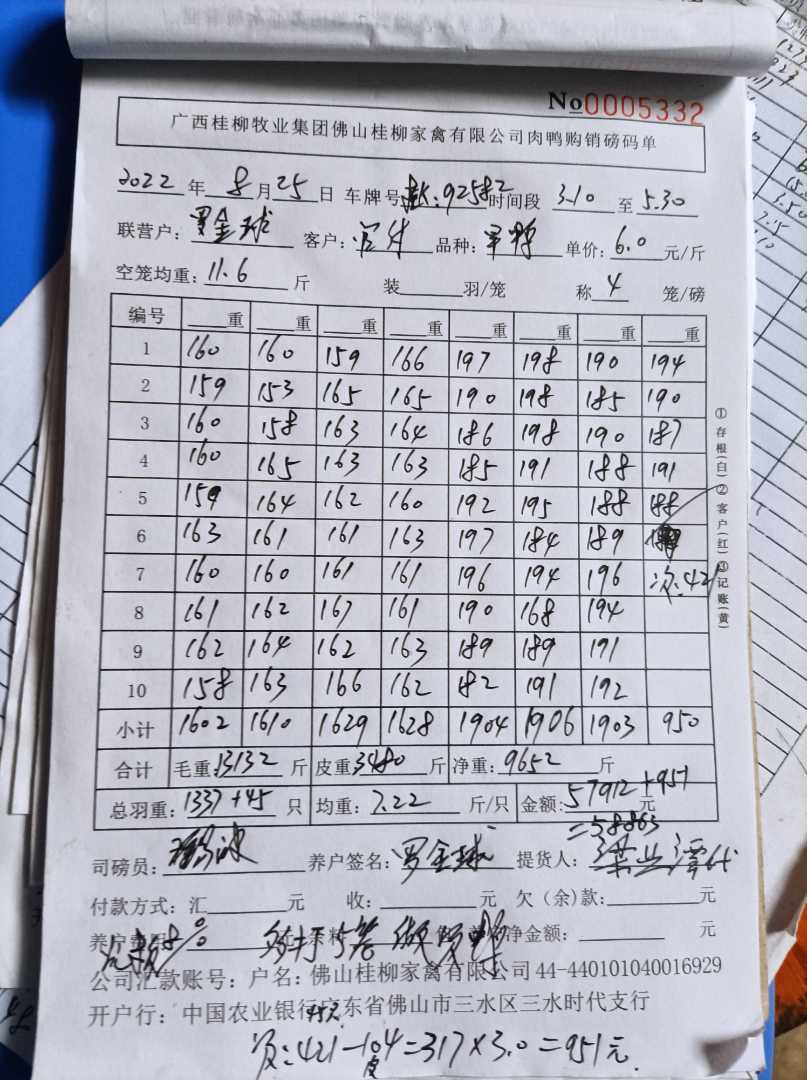 No0005332
广西桂柳牧业集团佛山桂柳家禽有限公司肉鸭购销磅码单
2022年8月25日 车牌号:92582 时间段 3.10至5.30
联营户:罗金球 客户: 品种: 单价:6.0元/斤
空笼均重:11.6斤 装 羽/笼 称4笼/磅
编号 重 重 重 重 重 重 重 重
1 160 160 159 166 197 198 190 194
2 159 153 165 165 190 198 185 190
3 160 158 163 164 186 198 190 187
4 160 165 163 163 185 191 188 191
5 159 164 162 160 192 195 188 188
6 163 161 161 163 197 184 189
7 160 160 161 161 196 194 196 次:421
8 161 162 167 161 190 168 194
9 162 164 162 163 189 189 191
10 158 163 166 162 182 191 192
小计 1602 1610 1629 1628 1904 1906 1903 950
合计 毛重:13132斤 皮重:3480斤 净重:9652斤
总羽重:1337+45只 均重:7.22斤/只 金额:57912+951元
=58863
司磅员: 养户签名:罗金球 提货人:
付款方式:汇 元 收: 元 欠(余)款: 元
净金额: 元
公司汇款账号:户名:佛山桂柳家禽有限公司44-440101040016929
开户行:中国农业银行广东省佛山市三水区三水时代支行
次:421-104=317×3.0=951元
皮
①存根(白)②客户(红)③记账(黄)